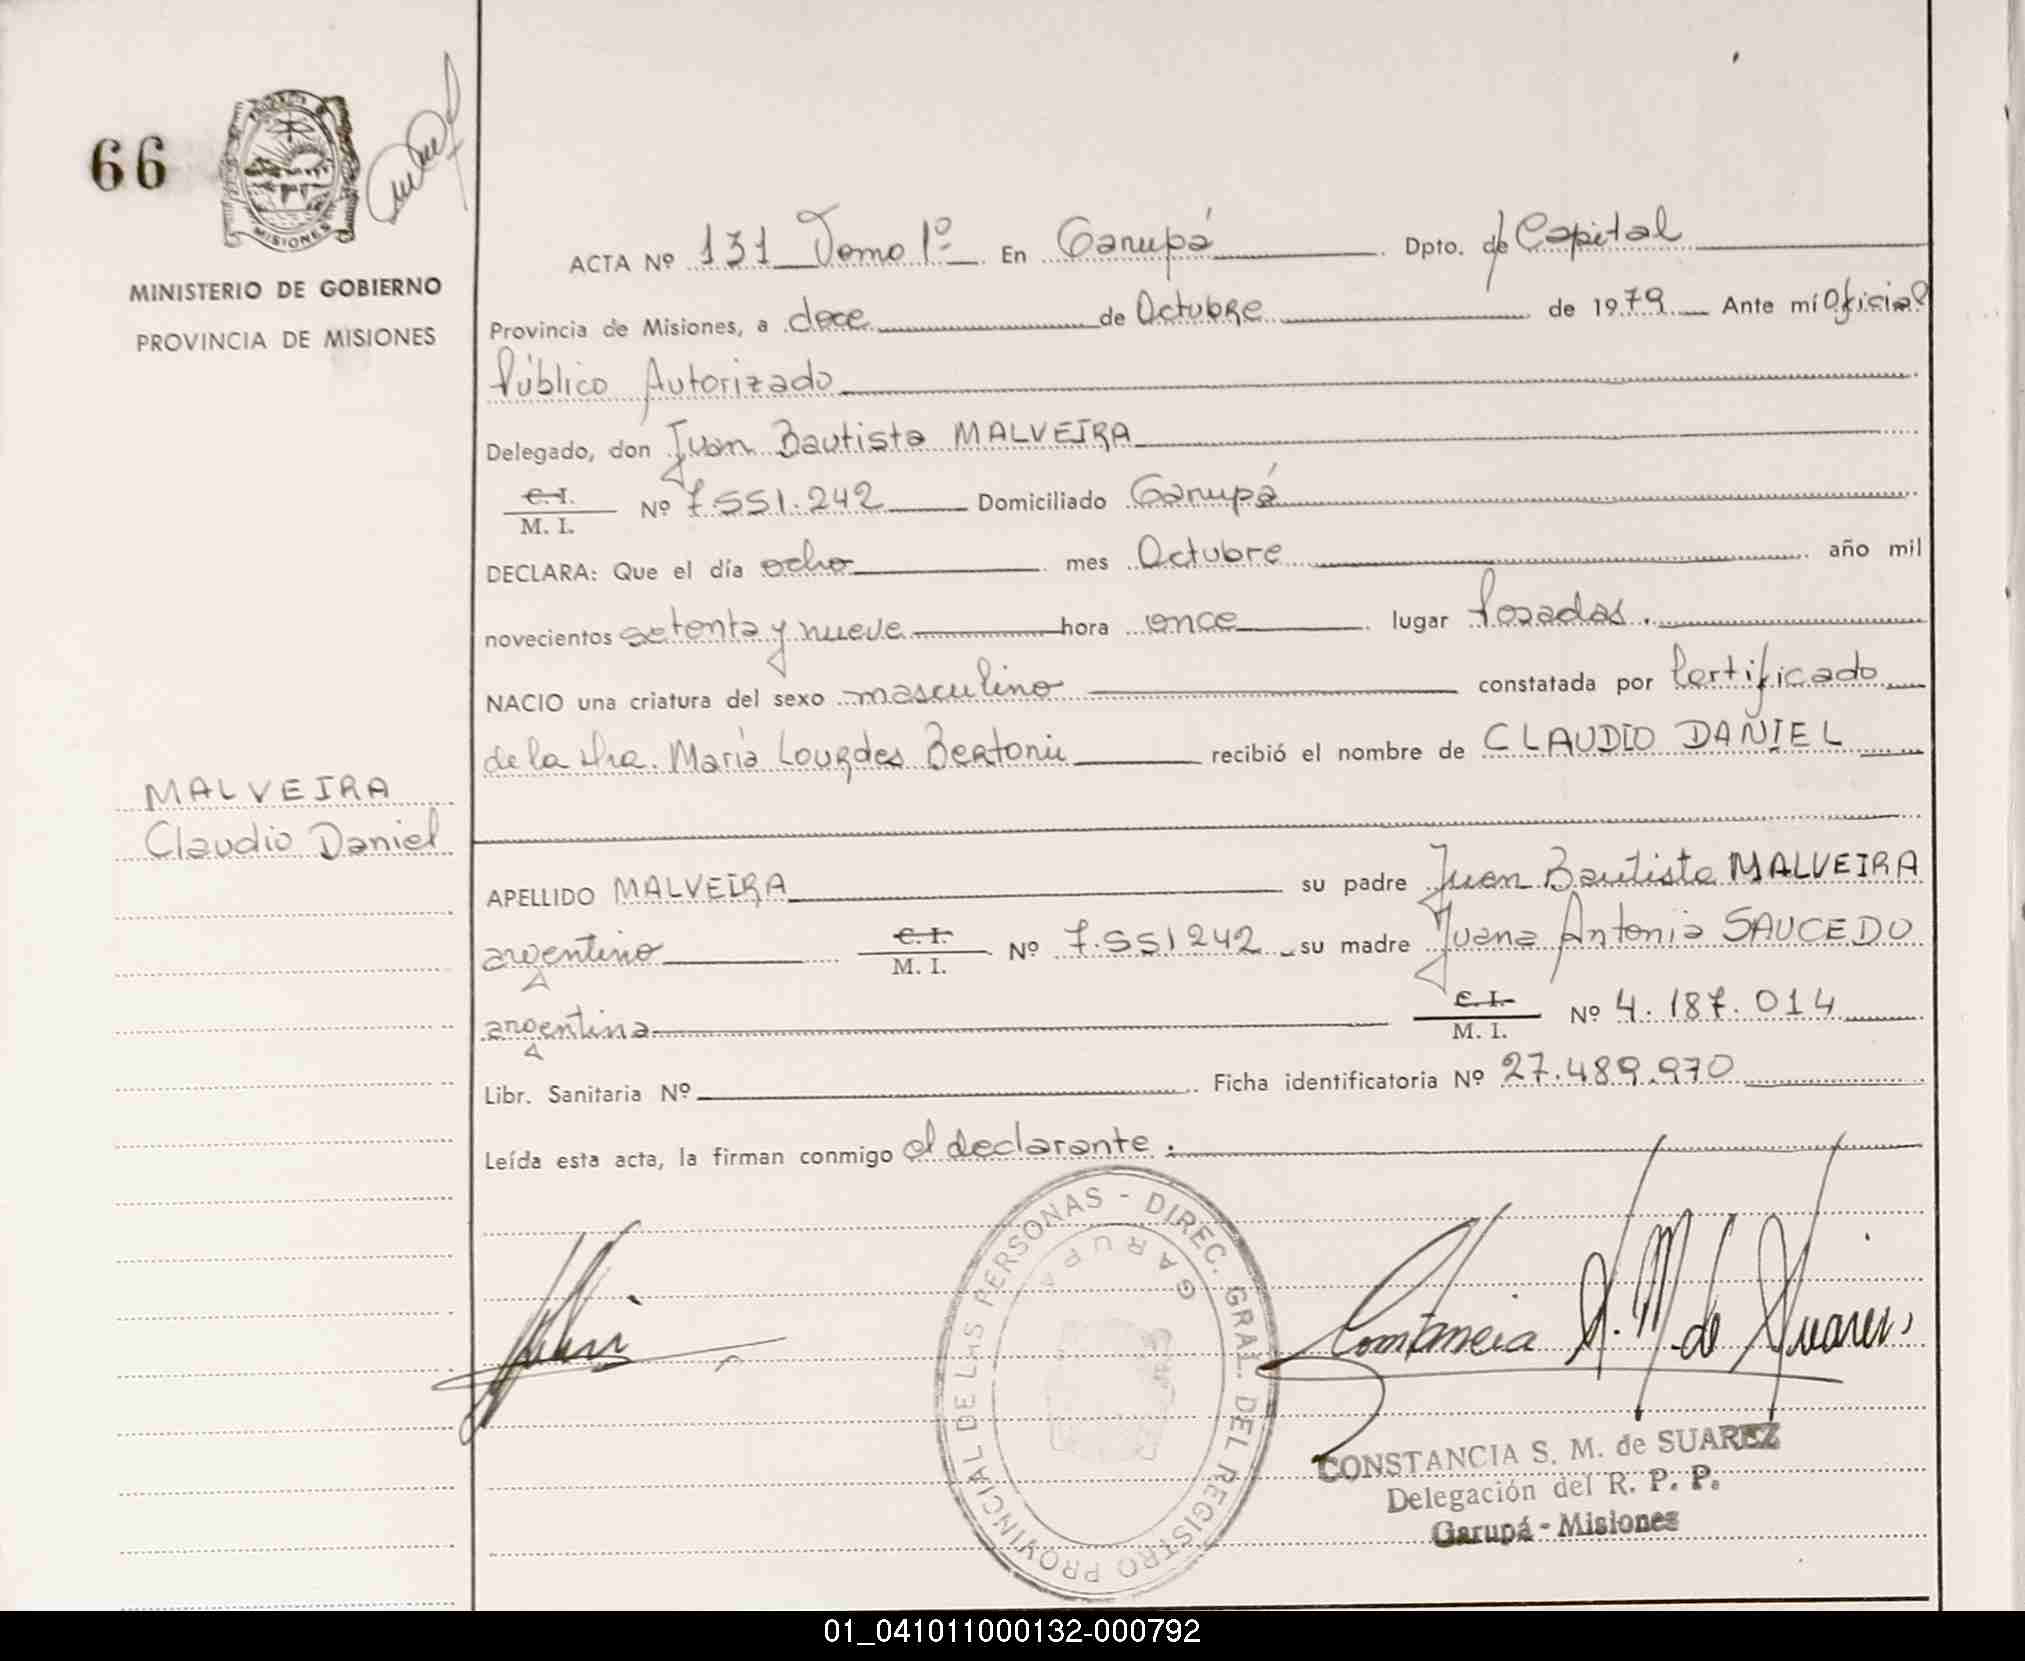 66
MISIONES
MINISTERIO DE GOBIERNO
PROVINCIA DE MISIONES
MALVEIRA
Claudio Daniel
ACTA Nº 131 Tomo 1º En Garupá Dpto. de Capital
Provincia de Misiones, a doce de Octubre de 1979 Ante mí Oficial
Público Autorizado
Delegado, don Juan Bautista MALVEIRA
C. I.
M. I. Nº 7.551.242 Domiciliado Garupá
DECLARA: Que el día ocho mes Octubre año mil
novecientos setenta y nueve hora once lugar Posadas.
NACIO una criatura del sexo masculino constatada por Certificado
de la Dra. María Lourdes Bertoni recibió el nombre de CLAUDIO DANIEL
APELLIDO MALVEIRA su padre Juan Bautista MALVEIRA
argentino C. I. M. I. Nº 7.551242 su madre Juana Antonia SAUCEDO
argentina C. I. M. I. Nº 4.187.014
Libr. Sanitaria Nº Ficha identificatoria Nº 27.489.970
Leída esta acta, la firman conmigo el declarante.
DIREC. GRAL. DEL REGISTRO PROVINCIAL DE LAS PERSONAS -
GARUPA
Constancia S. M. de Suarez
CONSTANCIA S. M. de SUAREZ
Delegación del R. P. P.
Garupá - Misiones
01_041011000132-000792